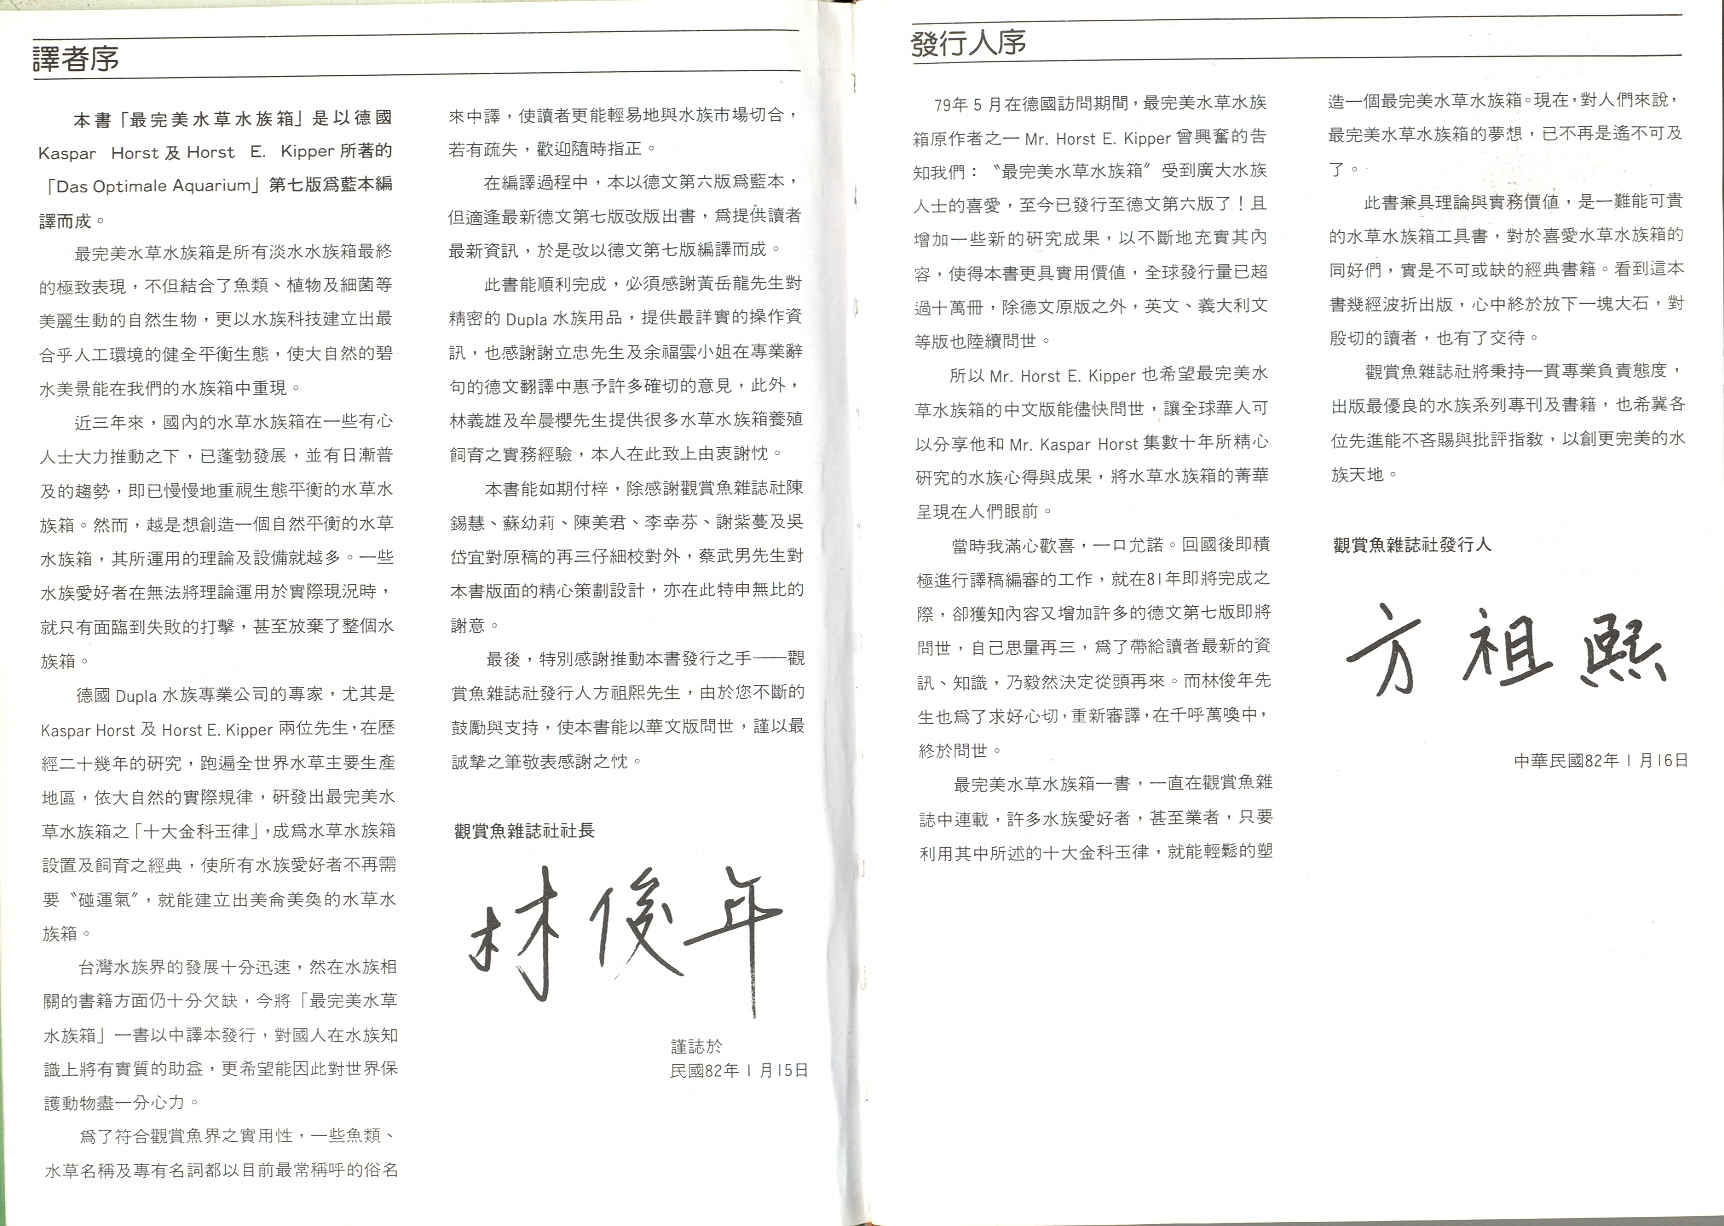 譯者序
本書「最完美水草水族箱」是以德國
Kaspar Horst及Horst E. Kipper所著的
「Das Optimale Aquarium」第七版爲藍本編
譯而成。
最完美水草水族箱是所有淡水水族箱最終
的極致表現，不但結合了魚類、植物及細菌等
美麗生動的自然生物，更以水族科技建立出最
合乎人工環境的健全平衡生態，使大自然的碧
水美景能在我們的水族箱中重現。
近三年來，國內的水草水族箱在一些有心
人士大力推動之下，已蓬勃發展，並有日漸普
及的趨勢，即已慢慢地重視生態平衡的水草水
族箱。然而，越是想創造一個自然平衡的水草
水族箱，其所運用的理論及設備就越多。一些
水族愛好者在無法將理論運用於實際現況時，
就只有面臨到失敗的打擊，甚至放棄了整個水
族箱。
德國Dupla水族專業公司的專家，尤其是
Kaspar Horst及Horst E. Kipper兩位先生，在歷
經二十幾年的研究，跑遍全世界水草主要生產
地區，依大自然的實際規律，研發出最完美水
草水族箱之「十大金科玉律」，成爲水草水族箱
設置及飼育之經典，使所有水族愛好者不再需
要〝碰運氣〞，就能建立出美侖美奐的水草水
族箱。
台灣水族界的發展十分迅速，然在水族相
關的書籍方面仍十分欠缺，今將「最完美水草
水族箱」一書以中譯本發行，對國人在水族知
識上將有實質的助益，更希望能因此對世界保
護動物盡一分心力。
爲了符合觀賞魚界之實用性，一些魚類、
水草名稱及專有名詞都以目前最常稱呼的俗名
來中譯，使讀者更能輕易地與水族市場切合，
若有疏失，歡迎隨時指正。
在編譯過程中，本以德文第六版爲藍本，
但適逢最新德文第七版改版出書，爲提供讀者
最新資訊，於是改以德文第七版編譯而成。
此書能順利完成，必須感謝黃岳龍先生對
精密的Dupla水族用品，提供最詳實的操作資
訊，也感謝謝立忠先生及余福雲小姐在專業辭
句的德文翻譯中惠予許多確切的意見，此外，
林義雄及牟晨櫻先生提供很多水草水族箱養殖
飼育之實務經驗，本人在此致上由衷謝忱。
本書能如期付梓，除感謝觀賞魚雜誌社陳
錫慧、蘇幼莉、陳美君、李幸芬、謝紫蔓及吳
岱宜對原稿的再三仔細校對外，蔡武男先生對
本書版面的精心策劃設計，亦在此特申無比的
謝意。
最後，特別感謝推動本書發行之手──觀
賞魚雜誌社發行人方祖熙先生，由於您不斷的
鼓勵與支持，使本書能以華文版問世，謹以最
誠摯之筆敬表感謝之忱。
觀賞魚雜誌社社長
林俊年
謹誌於
民國82年1月15日
發行人序
79年5月在德國訪問期間，最完美水草水族
箱原作者之一Mr. Horst E. Kipper曾興奮的告
知我們：〝最完美水草水族箱〞受到廣大水族
人士的喜愛，至今已發行至德文第六版了！且
增加一些新的研究成果，以不斷地充實其內
容，使得本書更具實用價值，全球發行量已超
過十萬冊，除德文原版之外，英文、義大利文
等版也陸續問世。
所以Mr. Horst E. Kipper也希望最完美水
草水族箱的中文版能儘快問世，讓全球華人可
以分享他和Mr. Kaspar Horst集數十年所精心
研究的水族心得與成果，將水草水族箱的菁華
呈現在人們眼前。
當時我滿心歡喜，一口允諾。回國後即積
極進行譯稿編審的工作，就在81年即將完成之
際，卻獲知內容又增加許多的德文第七版即將
問世，自己思量再三，爲了帶給讀者最新的資
訊、知識，乃毅然決定從頭再來。而林俊年先
生也爲了求好心切，重新審譯，在千呼萬喚中，
終於問世。
最完美水草水族箱一書，一直在觀賞魚雜
誌中連載，許多水族愛好者，甚至業者，只要
利用其中所述的十大金科玉律，就能輕鬆的塑
造一個最完美水草水族箱。現在，對人們來說，
最完美水草水族箱的夢想，已不再是遙不可及
了。
此書兼具理論與實務價値，是一難能可貴
的水草水族箱工具書，對於喜愛水草水族箱的
同好們，實是不可或缺的經典書籍。看到這本
書幾經波折出版，心中終於放下一塊大石，對
殷切的讀者，也有了交待。
觀賞魚雜誌社將秉持一貫專業負責態度，
出版最優良的水族系列專刊及書籍，也希冀各
位先進能不吝賜與批評指教，以創更完美的水
族天地。
觀賞魚雜誌社發行人
方祖熙
中華民國82年1月16日